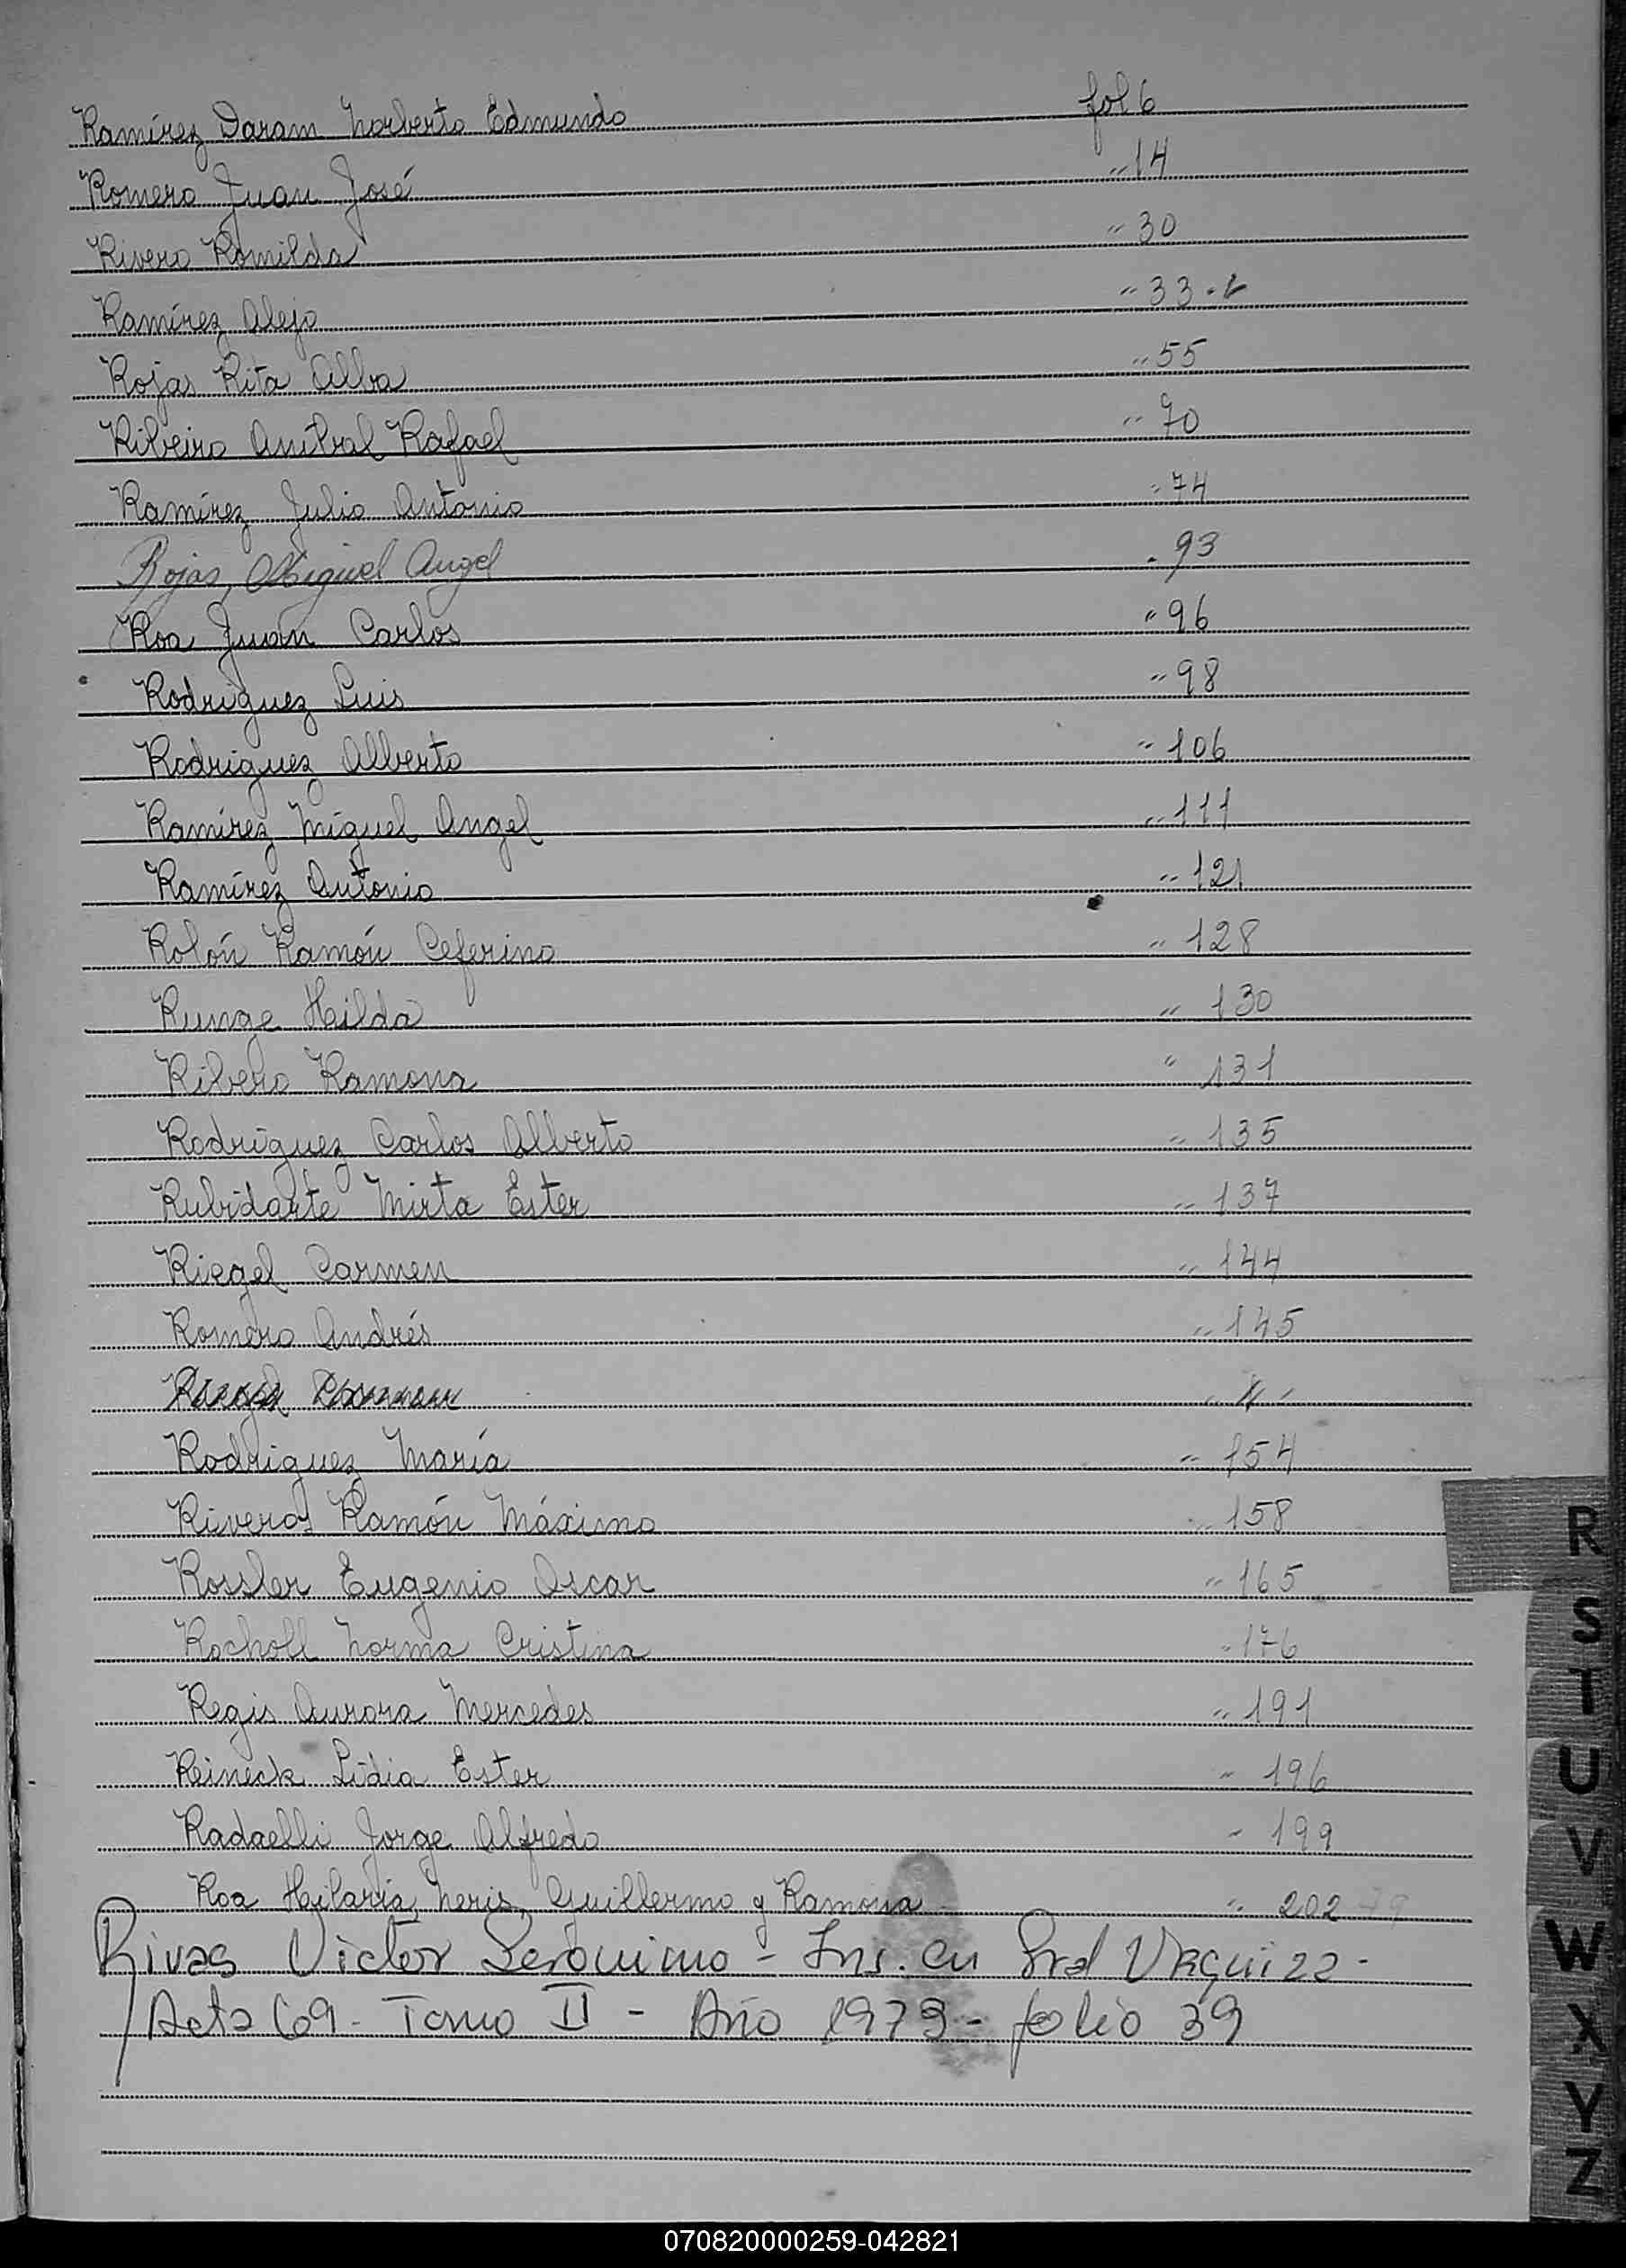 Ramírez Daram Norberto Edmundo fol 6
Romero Juan José " 14
Rivero Romilda " 30
Ramírez Alejo " 33
Rojas Rita Alba " 55
Ribeiro Aníbal Rafael " 70
Ramírez Julio Antonio " 74
Rojas, Miguel Angel " 93
Roa Juan Carlos " 96
Rodriguez Luis " 98
Rodriguez Alberto " 106
Ramírez Miguel Angel " 111
Ramírez Antonio " 121
Rolón Ramón Ceferino " 128
Runge Hilda " 130
Ribero Ramona " 131
Rodríguez Carlos Alberto " 135
Rubidarte Mirta Ester " 137
Riegel Carmen " 144
Romero Andrés " 145
Rodriguez María " 154
Riveros Ramón Máximo " 158
Rossler Eugenio Oscar " 165
Rocholl Norma Cristina " 176
Regis Aurora Mercedes " 191
Reineck Lidia Ester " 196
Radaelli Jorge Alfredo " 199
Roa Hilaria, Neris, Guillermo y Ramona " 202
Rivas Victor Gerónimo - Ins. en Gral Urquiza -
Acta 69 - Tomo II - Año 1979 - folio 39
R
S
T
U
V
W
X
Y
Z
070820000259-042821